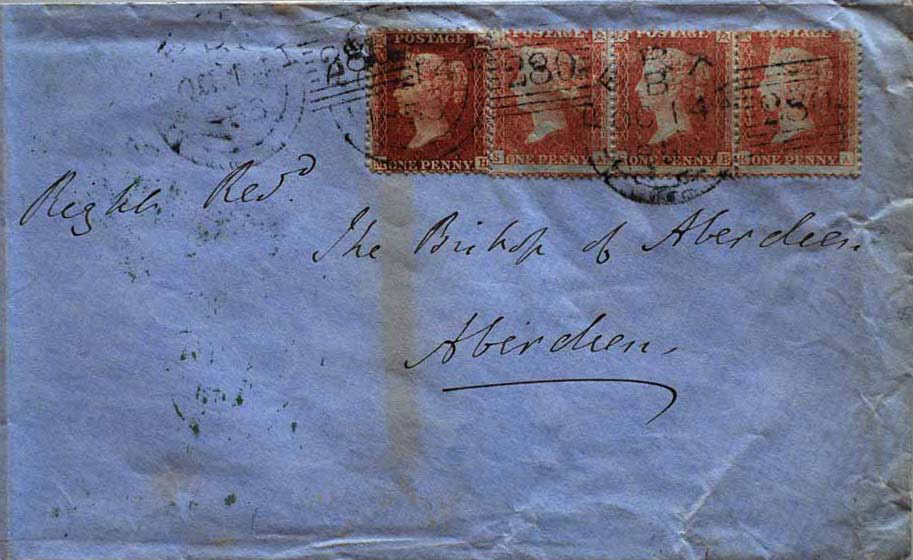 POSTAGE POSTAGE POSTAGE POSTAGE
280 280 280
OC 14
ONE PENNY ONE PENNY ONE PENNY ONE PENNY
Right Revd.
The Bishop of Aberdeen
Aberdeen.